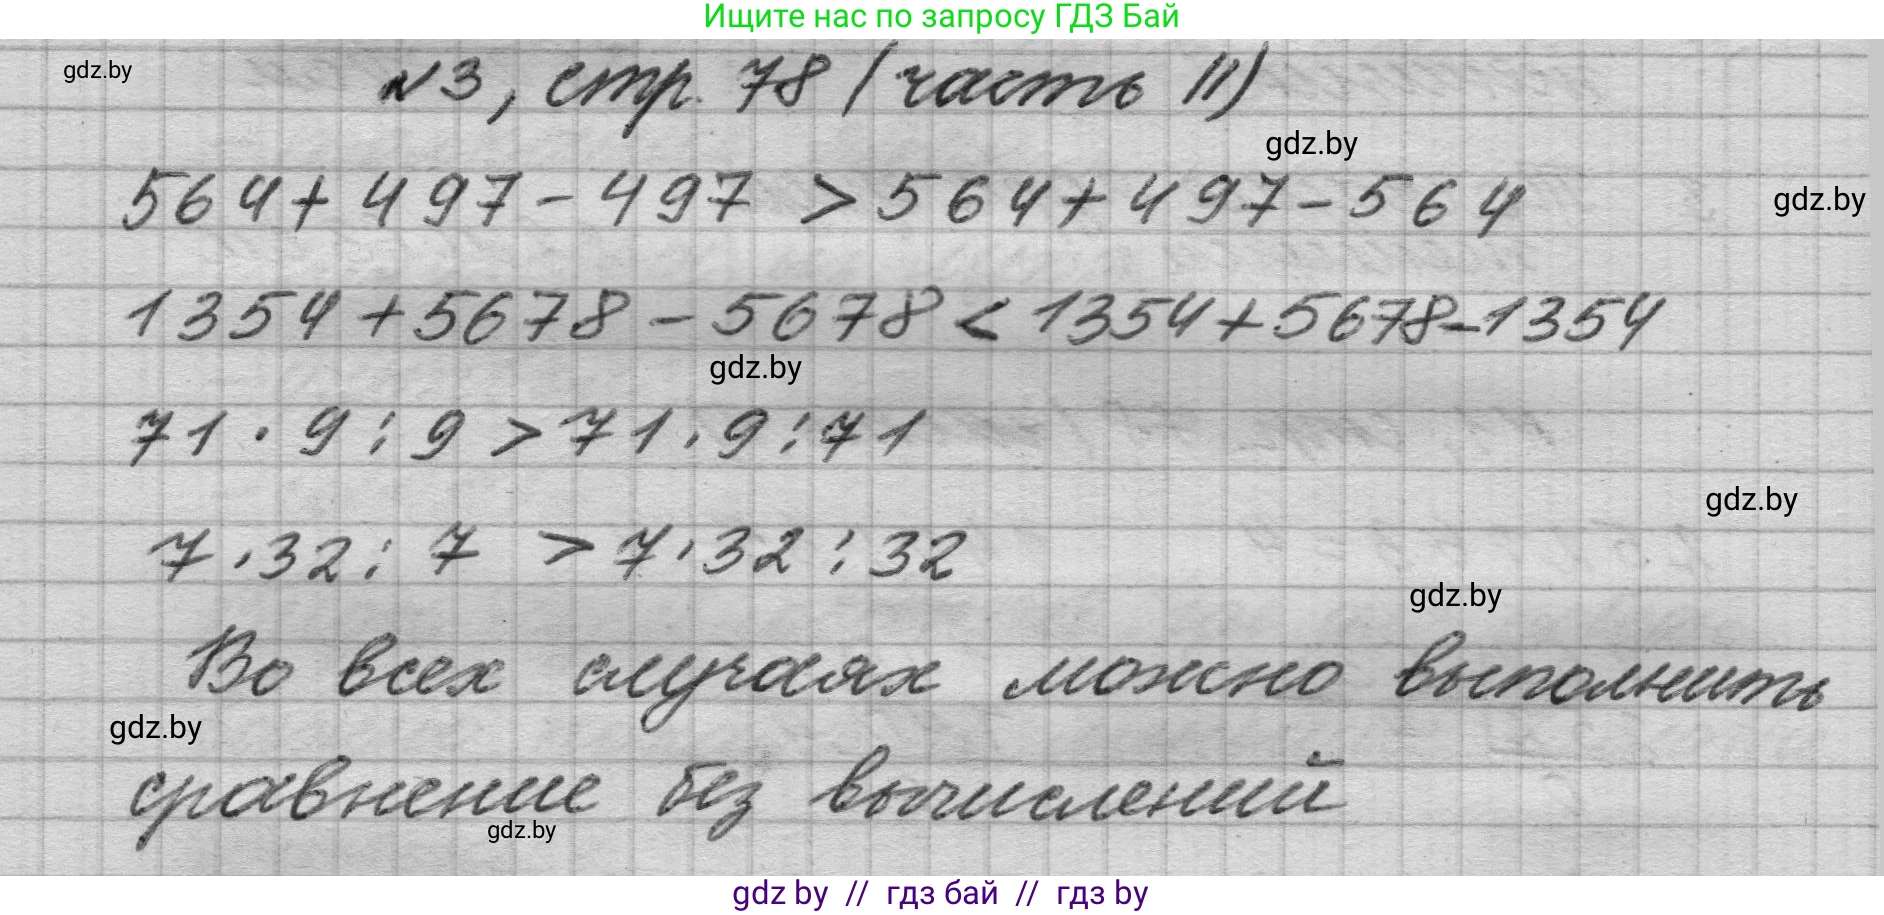 Ищите нас по запросу ГДЗ Бай
gdz.by
№3, стр. 78 (часть II)
gdz.by
564+497-497 > 564+497-564
gdz.by
1354+5678-5678 < 1354+5678-1354
gdz.by
71·9:9 > 71·9:71
gdz.by
7·32:7 > 7·32:32
gdz.by
Во всех случаях можно выполнить
gdz.by
сравнение без вычислений
gdz.by
gdz by // гдз бай // гдз by